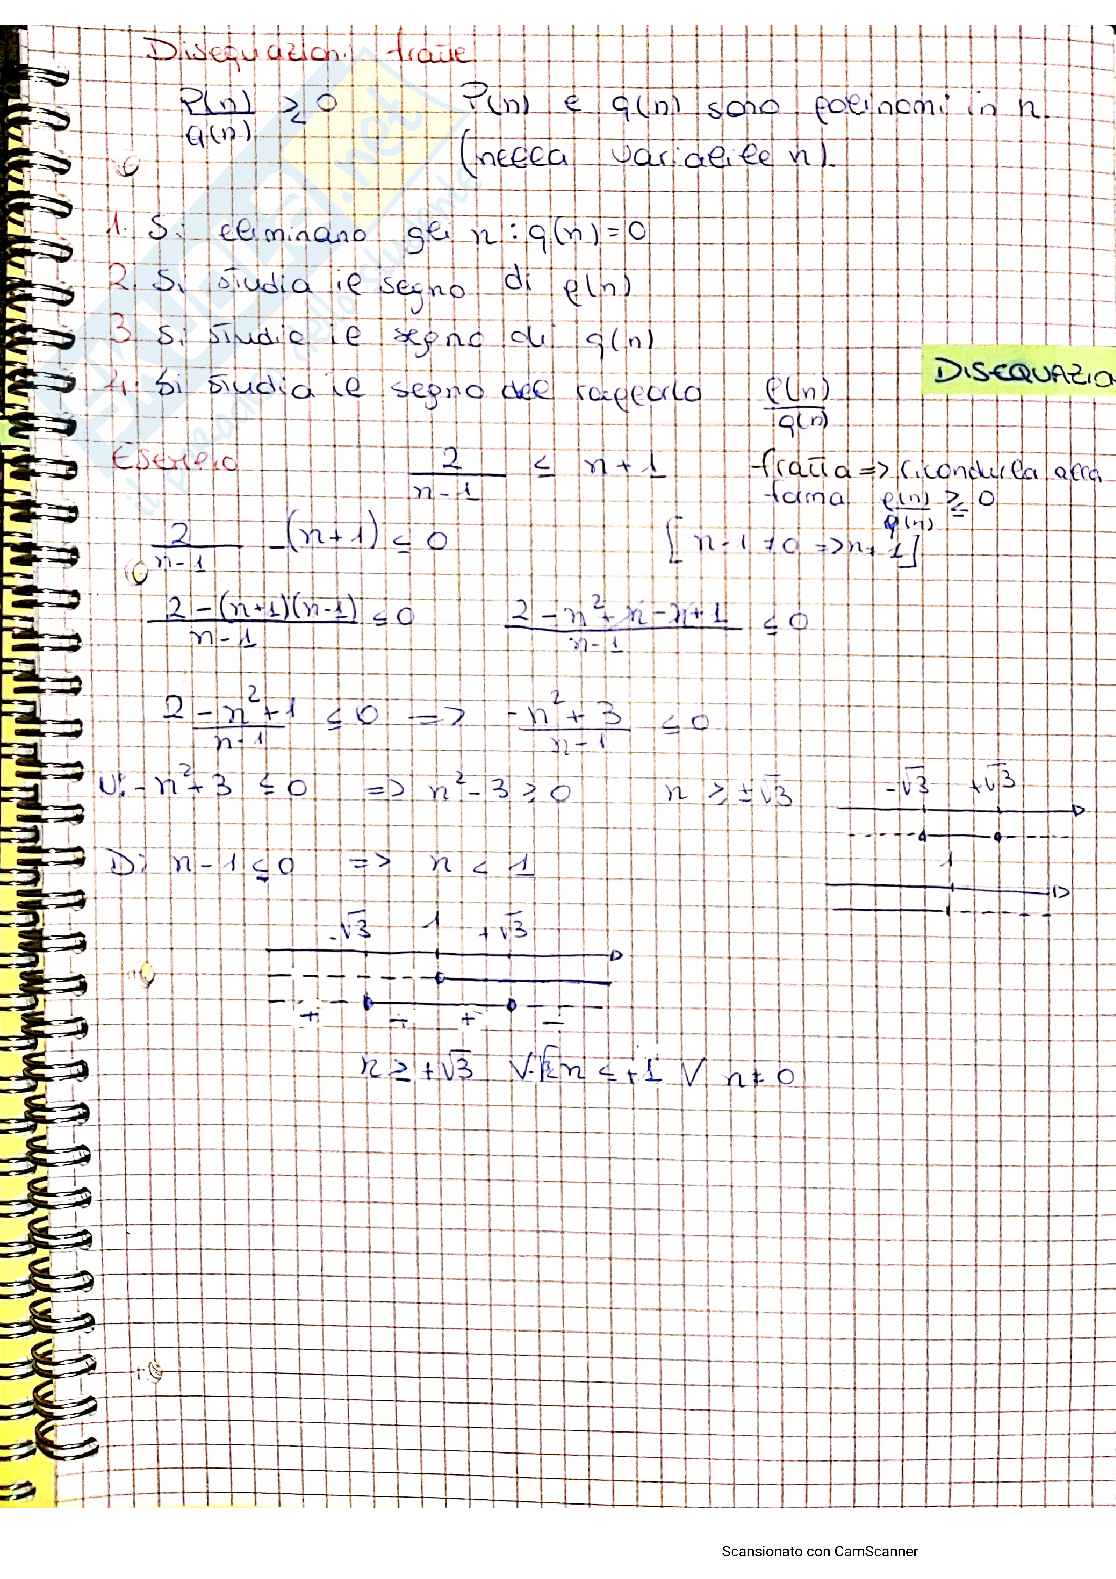 Disequazioni fratte
P(n)/q(n) ≥ 0 P(n) e q(n) sono polinomi in n
(nella variabile n).
1. Si eliminano gli n : q(n)=0
2. Si studia il segno di p(n)
3. Si studia il segno di q(n)
4. Si studia il segno del rapporto p(n)/q(n)
DISEQUAZIO
Esempio 2/(n-1) ≤ n+1 fratta => ricondurla alla
forma p(n)/q(n) ≥ 0
2/(n-1) -(n+1) ≤ 0 [n-1≠0 => n≠1]
(2-(n+1)(n-1))/(n-1) ≤ 0 (2-n²+n-n+1)/(n-1) ≤ 0
(2-n²+1)/(n-1) ≤ 0 => (-n²+3)/(n-1) ≤ 0
N: -n²+3 ≤ 0 => n²-3 ≥ 0 n ≥ ±√3
-√3 +√3
D: n-1 ≤ 0 => n < 1
1
-√3 1 +√3
+ - + -
n ≥ +√3 V n ≤ +1 V n ≠ 0
Scansionato con CamScanner